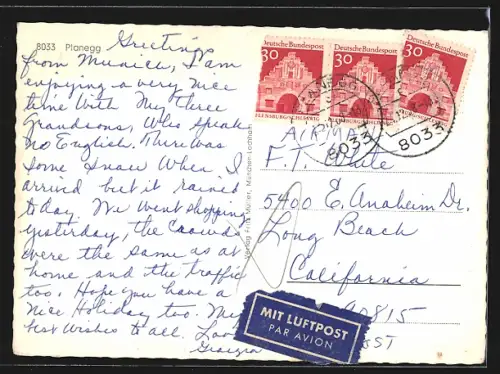 8033 Planegg
Greetings
from Munich, I am
enjoying a very nice
time with my three
Grandsons, who speak
no English. There was
some snow when I
arrived but it rained
today. We went shopping
yesterday, the crowds
were the same as at
home and the traffic
too. Hope you have a
nice Holiday too. My
best wishes to all. Love
Georgia
Verlag Fritz Müller, München-Lochham
Deutsche Bundespost
30
FLENSBURG/SCHLESWIG
Deutsche Bundespost
30
Deutsche Bundespost
30
PLANEGG
8033
8033
AIRMAIL
F.T. White
5400 E. Anaheim Dr.
Long Beach
California
90815
MIT LUFTPOST
PAR AVION